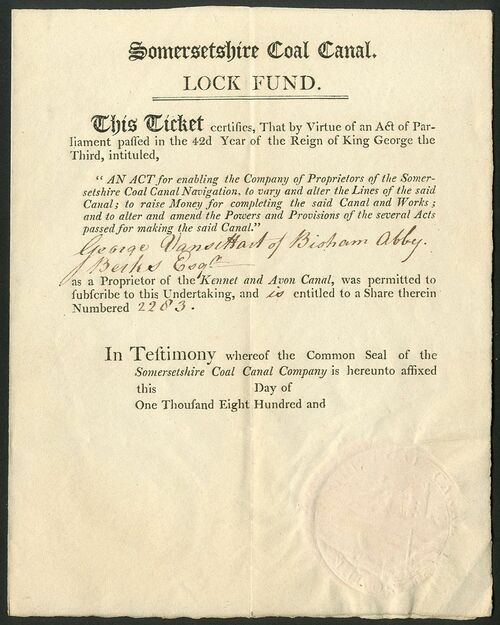 Somersetshire Coal Canal.
LOCK FUND.
This Ticket certifies, That by Virtue of an Act of Par-
liament paſſed in the 42d Year of the Reign of King George the
Third, intituled,
“ AN ACT for enabling the Company of Proprietors of the Somer-
setshire Coal Canal Navigation, to vary and alter the Lines of the said
Canal; to raise Money for completing the said Canal and Works;
and to alter and amend the Powers and Provisions of the several Acts
passed for making the said Canal.”
George Vansittart of Bisham Abby.
Berks Esqr
as a Proprietor of the Kennet and Avon Canal, was permitted to
ſubſcribe to this Undertaking, and is entitled to a Share therein
Numbered 2283.
In Teſtimony whereof the Common Seal of the
Somersetshire Coal Canal Company is hereunto affixed
this Day of
One Thouſand Eight Hundred and